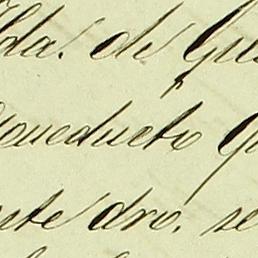 da. de Gu
oneducto q
ete dro. se